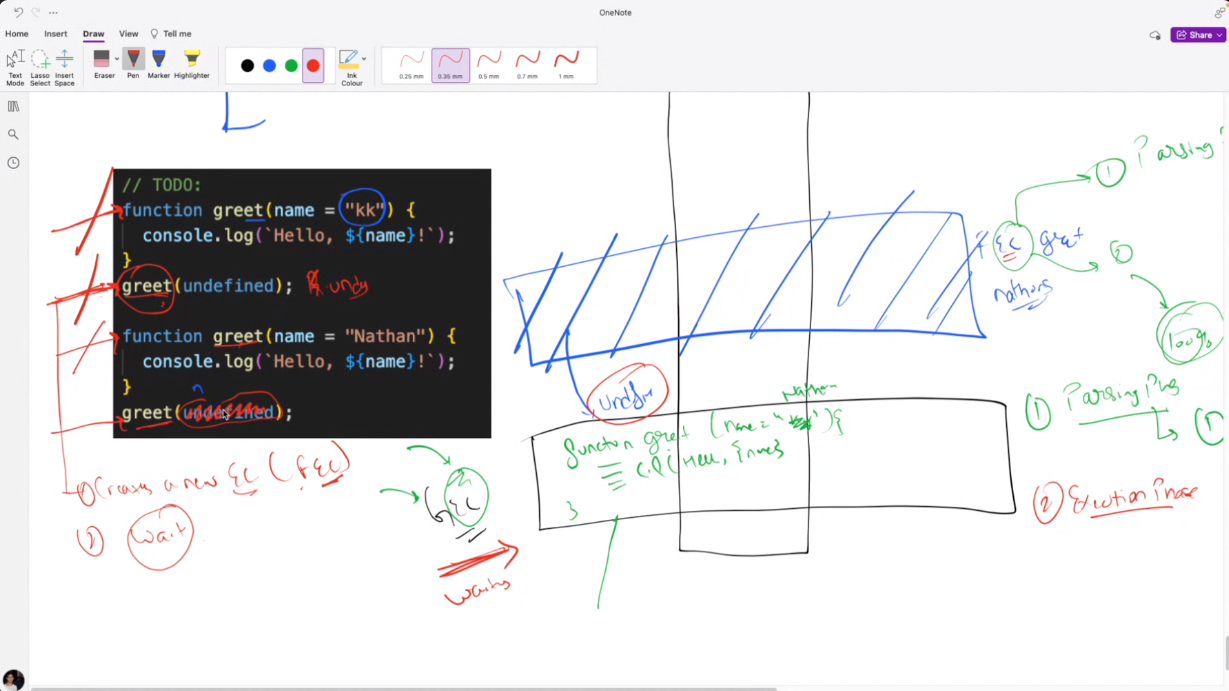 OneNote
Home Insert Draw View Tell me
Share
Text Mode
Lasso Select
Insert Space
Eraser
Pen
Marker
Highlighter
Ink Colour
0.25 mm
0.35 mm
0.5 mm
0.7 mm
1 mm
// TODO:
function greet(name = "kk") {
console.log(`Hello, ${name}!`);
}
greet(undefined);
function greet(name = "Nathan") {
console.log(`Hello, ${name}!`);
}
greet(undefined);
n
① Creates a new EC (fEC)
② Wait
GEC
waits
Nathan
function greet (name = "
}
① Parsing P
EC greet
②
100%
① Parsing Phas
①
② Execution Phase